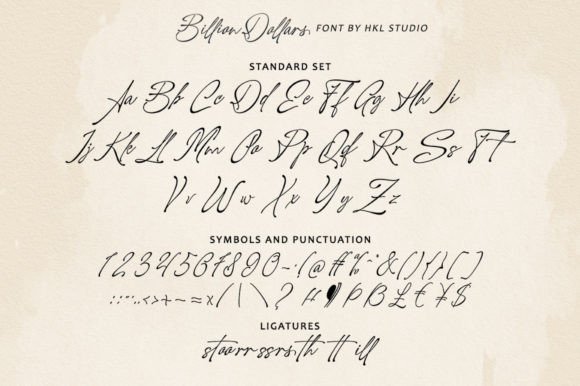 Billion Dollars FONT BY HKL STUDIO
STANDARD SET
Aa Bb Cc Dd Ee Ff Gg Hh Ii
Jj Kk Ll Mm Oo Pp Qq Rr Ss Tt
Vv Ww Xx Yy Zz
SYMBOLS AND PUNCTUATION
1234567890-·!@#%^&(){}[]
:;",.<>+-=×/|\? ¶ Þ ß £ € ¥ $
LIGATURES
tt ill